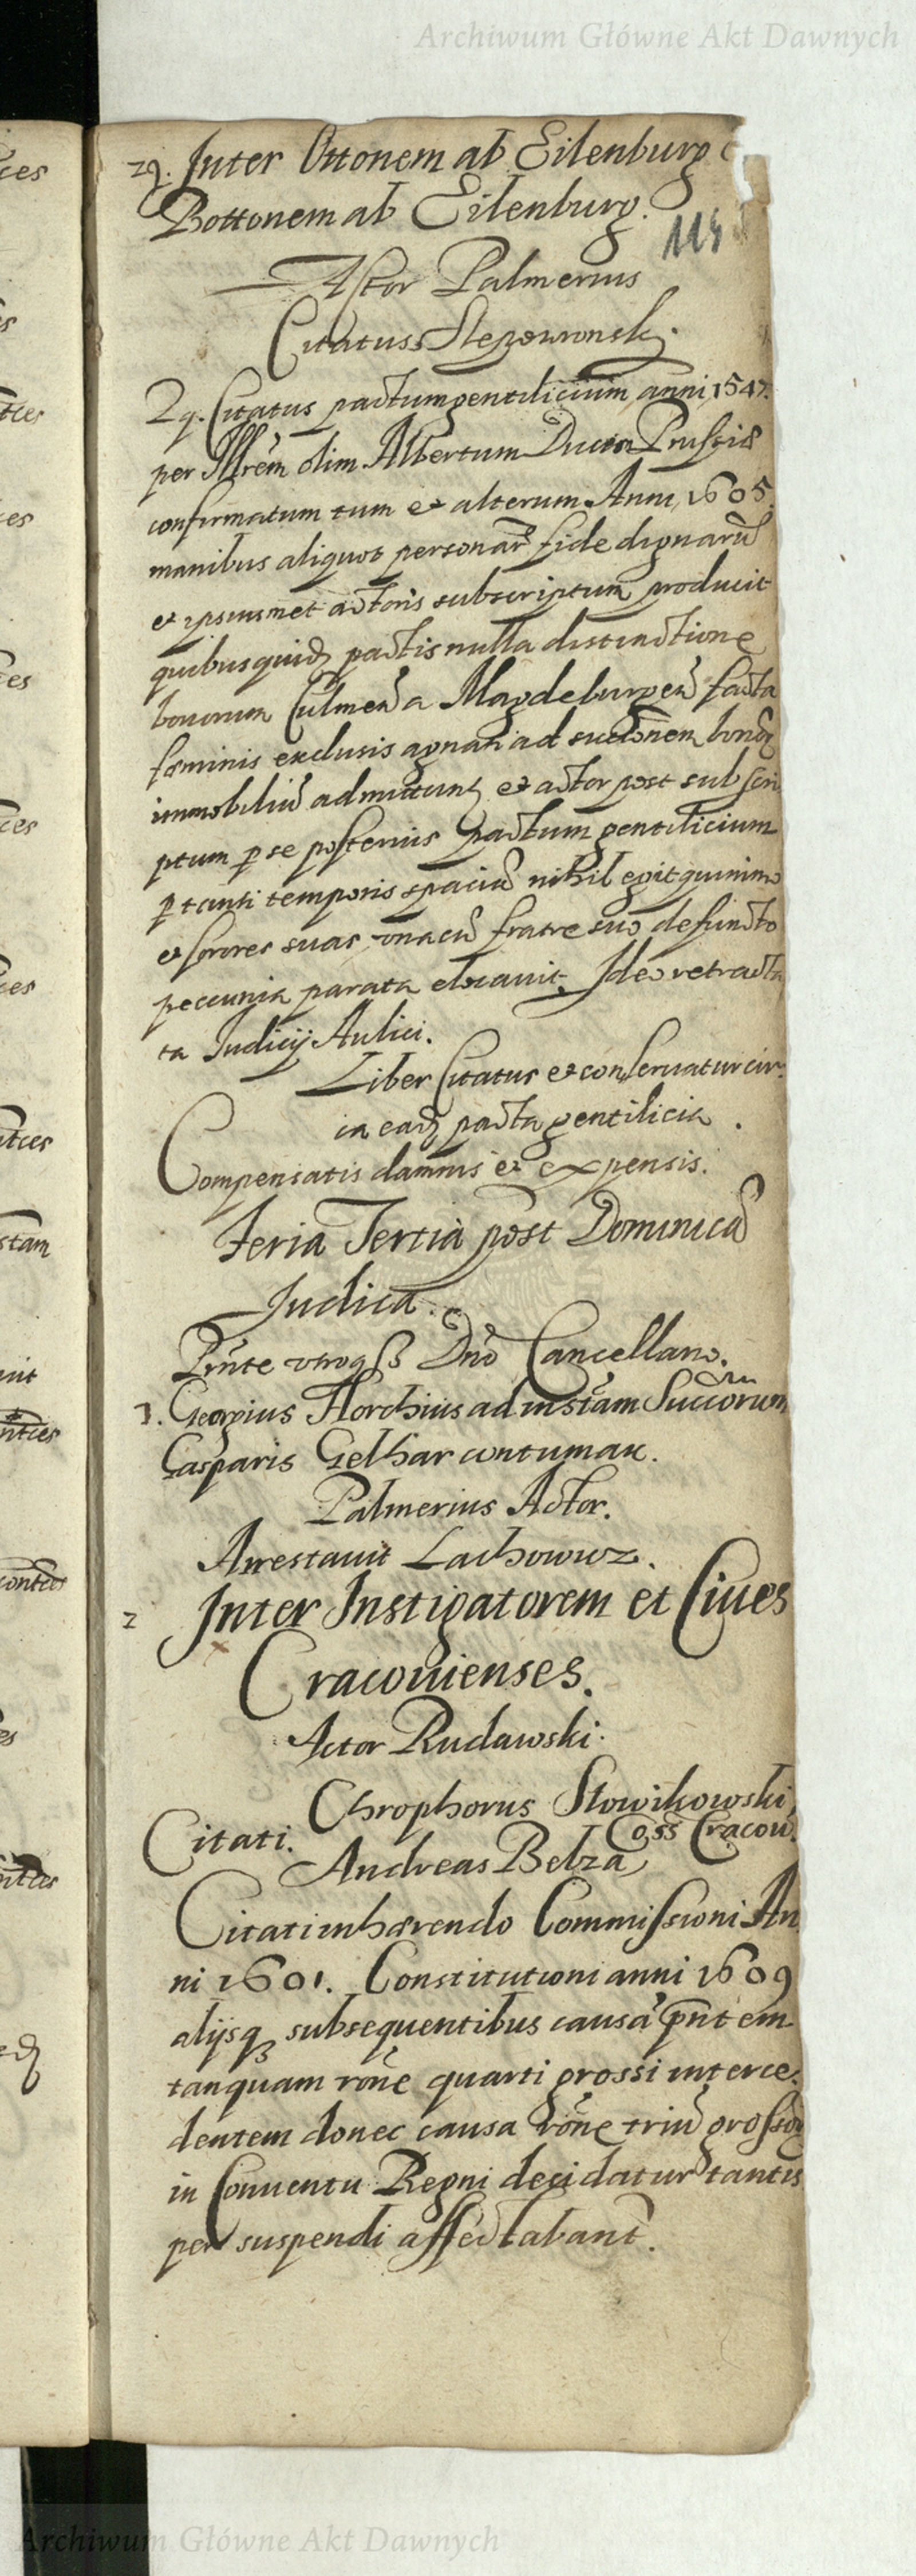 Archiwum Główne Akt Dawnych
29. Inter Ottonem ab Eilenburg e
Bottonem ab Eilenburg.
115
Actor Palmerius
Citatus Slepowronski.
29. Citatus pactum gentilicium anni 1547.
per Illrem olim Albertum Ducem Prussiæ
confirmatum tum et alterum Anni 1605
manibus aliquot personarũ fide dignarũ
et ipsiusmet actoris subscriptum producit
quibus quidẽ pactis nulla distinctione
bonorum Culmeñ a Magdeburgeñ facta
fæminis exclusis agnati ad succõnem bonoꝝ
immobiliũ admittunt, et actor post subscri
ptum p se posterius pactum gentilicium
p tanti temporis spaciũ nihil egit quinimo
et sorores suas, una cũ fratre suo defuncto
peccunia parata elocauit. Ideo retracta
ta Iudicij Aulici.
Liber Citatus et conseruatur cir
ca eadẽ pacta gentilicia.
Compensatis damnis et expensis.
Feria Tertia post Dominicã
Iudica.
Pñte utroqꝫ Dño Cancellario.
1. Georgius Horchius ad instãm Succõrum
Casparis Gelhar contumax.
Palmerius Actor.
Arrestauit Lachowicz.
2 Inter Instigatorem et Ciues
Cracouienses.
Actor Rudawski.
Chrophorus Slowikowski,
Citati. Coss Cracou.
Andreas Belza,
Citati inhærendo Commissioni An
ni 1601. Constitutioni anni 1609
alijsqꝫ subsequentibus causã pñtem
tanquam rõne quarti grossi interce-
dentem donec causa rõne triũ grossoꝝ
in Conuentu Regni decidatur tantis
per suspendi affectabant.
Archiwum Główne Akt Dawnych